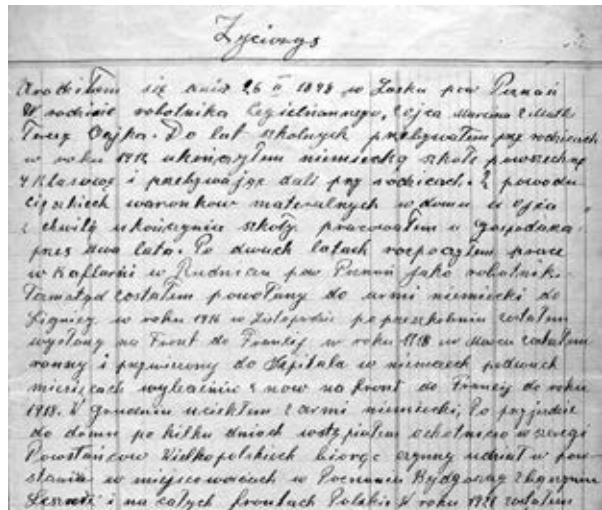 Życiorys
Urodziłem się dnia 26 II 1898 w Łasku pow Poznań
W rodzinie robotnika Cegielnianego, z ojca Marcina z Matki
Teresy Czajka. Do lat szkolnych przebywałem przy rodzicach
w roku 1912 ukończyłem niemiecką szkołę powszechną
4 klasową i przebywając dali przy rodzicach. Z powodu
ciężkich warunków materalnych w domu u ojca
z chwilą ukończenia szkoły pracowałem u gospodarza
przez dwa lata. Po dwuch latach rozpocząłem pracę
w Kaflarni w Rudniczu pow Poznań jako robotnik.
Tamstąd zostałem powołany do armi niemiecki do
Lignicy w roku 1916 w Listopadzie po przeszkoleniu zostałem
wysłany na Front do Francji w roku 1918 w Marcu zostałem
ranny i przewieziony do Szpitala w niemczech po dwuch
miesiącach wyleczeniu z now na front do Francji do roku
1918. W grudniu uciekłem z armi niemiecki, Po przyjeździe
do domu po kilku dniach wstąpiłem ochotniczo w szeregi
Powstańców Wielkopolskich biorąc czynny udział w pow-
staniu w miejscowościach w Poznaniu Bydgoszcz Zbąszyn
Leszno i na całych frontach Polskich W roku 1921 zostałem